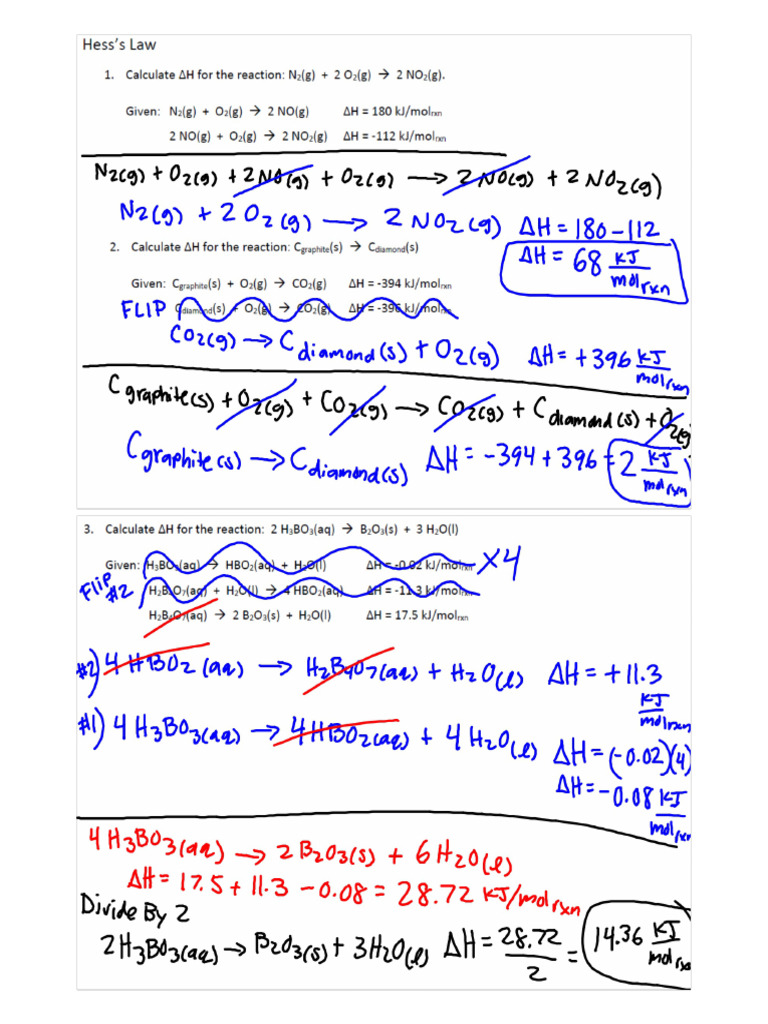 Hess's Law
1. Calculate ΔH for the reaction: N₂(g) + 2 O₂(g) → 2 NO₂(g).
Given: N₂(g) + O₂(g) → 2 NO(g) ΔH = 180 kJ/molrxn
2 NO(g) + O₂(g) → 2 NO₂(g) ΔH = -112 kJ/molrxn
N₂(g) + O₂(g) + 2 NO(g) + O₂(g) → 2 NO(g) + 2 NO₂(g)
N₂(g) + 2 O₂(g) → 2 NO₂(g) ΔH = 180 - 112
ΔH = 68 KJ/molrxn
2. Calculate ΔH for the reaction: Cgraphite(s) → Cdiamond(s)
Given: Cgraphite(s) + O₂(g) → CO₂(g) ΔH = -394 kJ/molrxn
FLIP Cdiamond(s) + O₂(g) → CO₂(g) ΔH = -396 kJ/molrxn
CO₂(g) → Cdiamond(s) + O₂(g) ΔH = +396 KJ/molrxn
Cgraphite(s) + O₂(g) + CO₂(g) → CO₂(g) + Cdiamond(s) + O₂(g)
Cgraphite(s) → Cdiamond(s) ΔH = -394 + 396 = 2 KJ/molrxn
3. Calculate ΔH for the reaction: 2 H₃BO₃(aq) → B₂O₃(s) + 3 H₂O(l)
Given: H₃BO₃(aq) → HBO₂(aq) + H₂O(l) ΔH = -0.02 kJ/molrxn X4
Flip #2 H₂B₄O₇(aq) + H₂O(l) → 4 HBO₂(aq) ΔH = -11.3 kJ/molrxn
H₂B₄O₇(aq) → 2 B₂O₃(s) + H₂O(l) ΔH = 17.5 kJ/molrxn
#2) 4 HBO₂(aq) → H₂B₄O₇(aq) + H₂O(l) ΔH = +11.3 KJ/molrxn
#1) 4 H₃BO₃(aq) → 4 HBO₂(aq) + 4 H₂O(l) ΔH = (-0.02)(4)
ΔH = -0.08 KJ/molrxn
4 H₃BO₃(aq) → 2 B₂O₃(s) + 6 H₂O(l)
ΔH = 17.5 + 11.3 - 0.08 = 28.72 KJ/molrxn
Divide By 2
2 H₃BO₃(aq) → B₂O₃(s) + 3 H₂O(l) ΔH = 28.72/2 = 14.36 KJ/molrxn